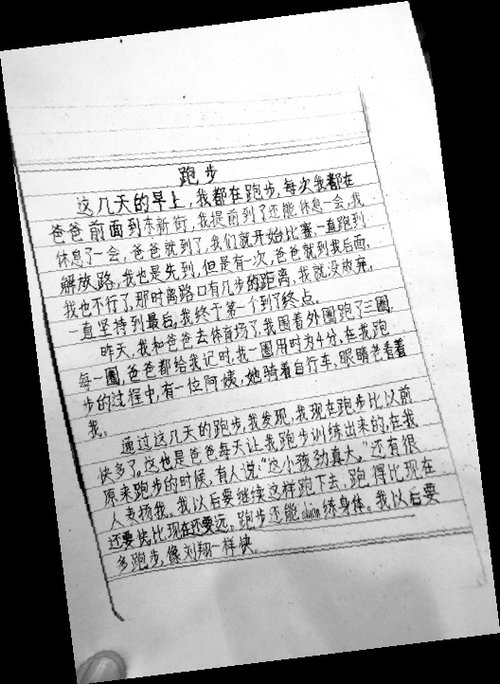 跑步
这几天的早上，我都在跑步，每次我都在
爸爸前面到东新街，我提前到了还能休息一会，我
休息了一会，爸爸就到了，我们就开始比赛，一直跑到
解放路，我也是先到，但是有一次，爸爸就到我后面，
我也不行了，那时离路口有几步的距离，我就没放弃，
一直坚持到最后，我终于第一个到了终点。
昨天，我和爸爸去体育场了，我围着外圈跑了三圈，
每一圈，爸爸都给我记时，我一圈用时为4分，在我跑
步的过程中，有一位阿姨，她骑着自行车，眼睛老看着
我。
通过这几天的跑步，我发现，我现在跑步比以前
快多了。这也是爸爸每天让我跑步训练出来的，在我
原来跑步的时候，有人说：“这小孩劲真大。”还有很
人表扬我。我以后要继续这样跑下去，跑得比现在
还要快，比现在还要远。跑步还能duan练身体。我以后要
多跑步，像刘翔一样快。